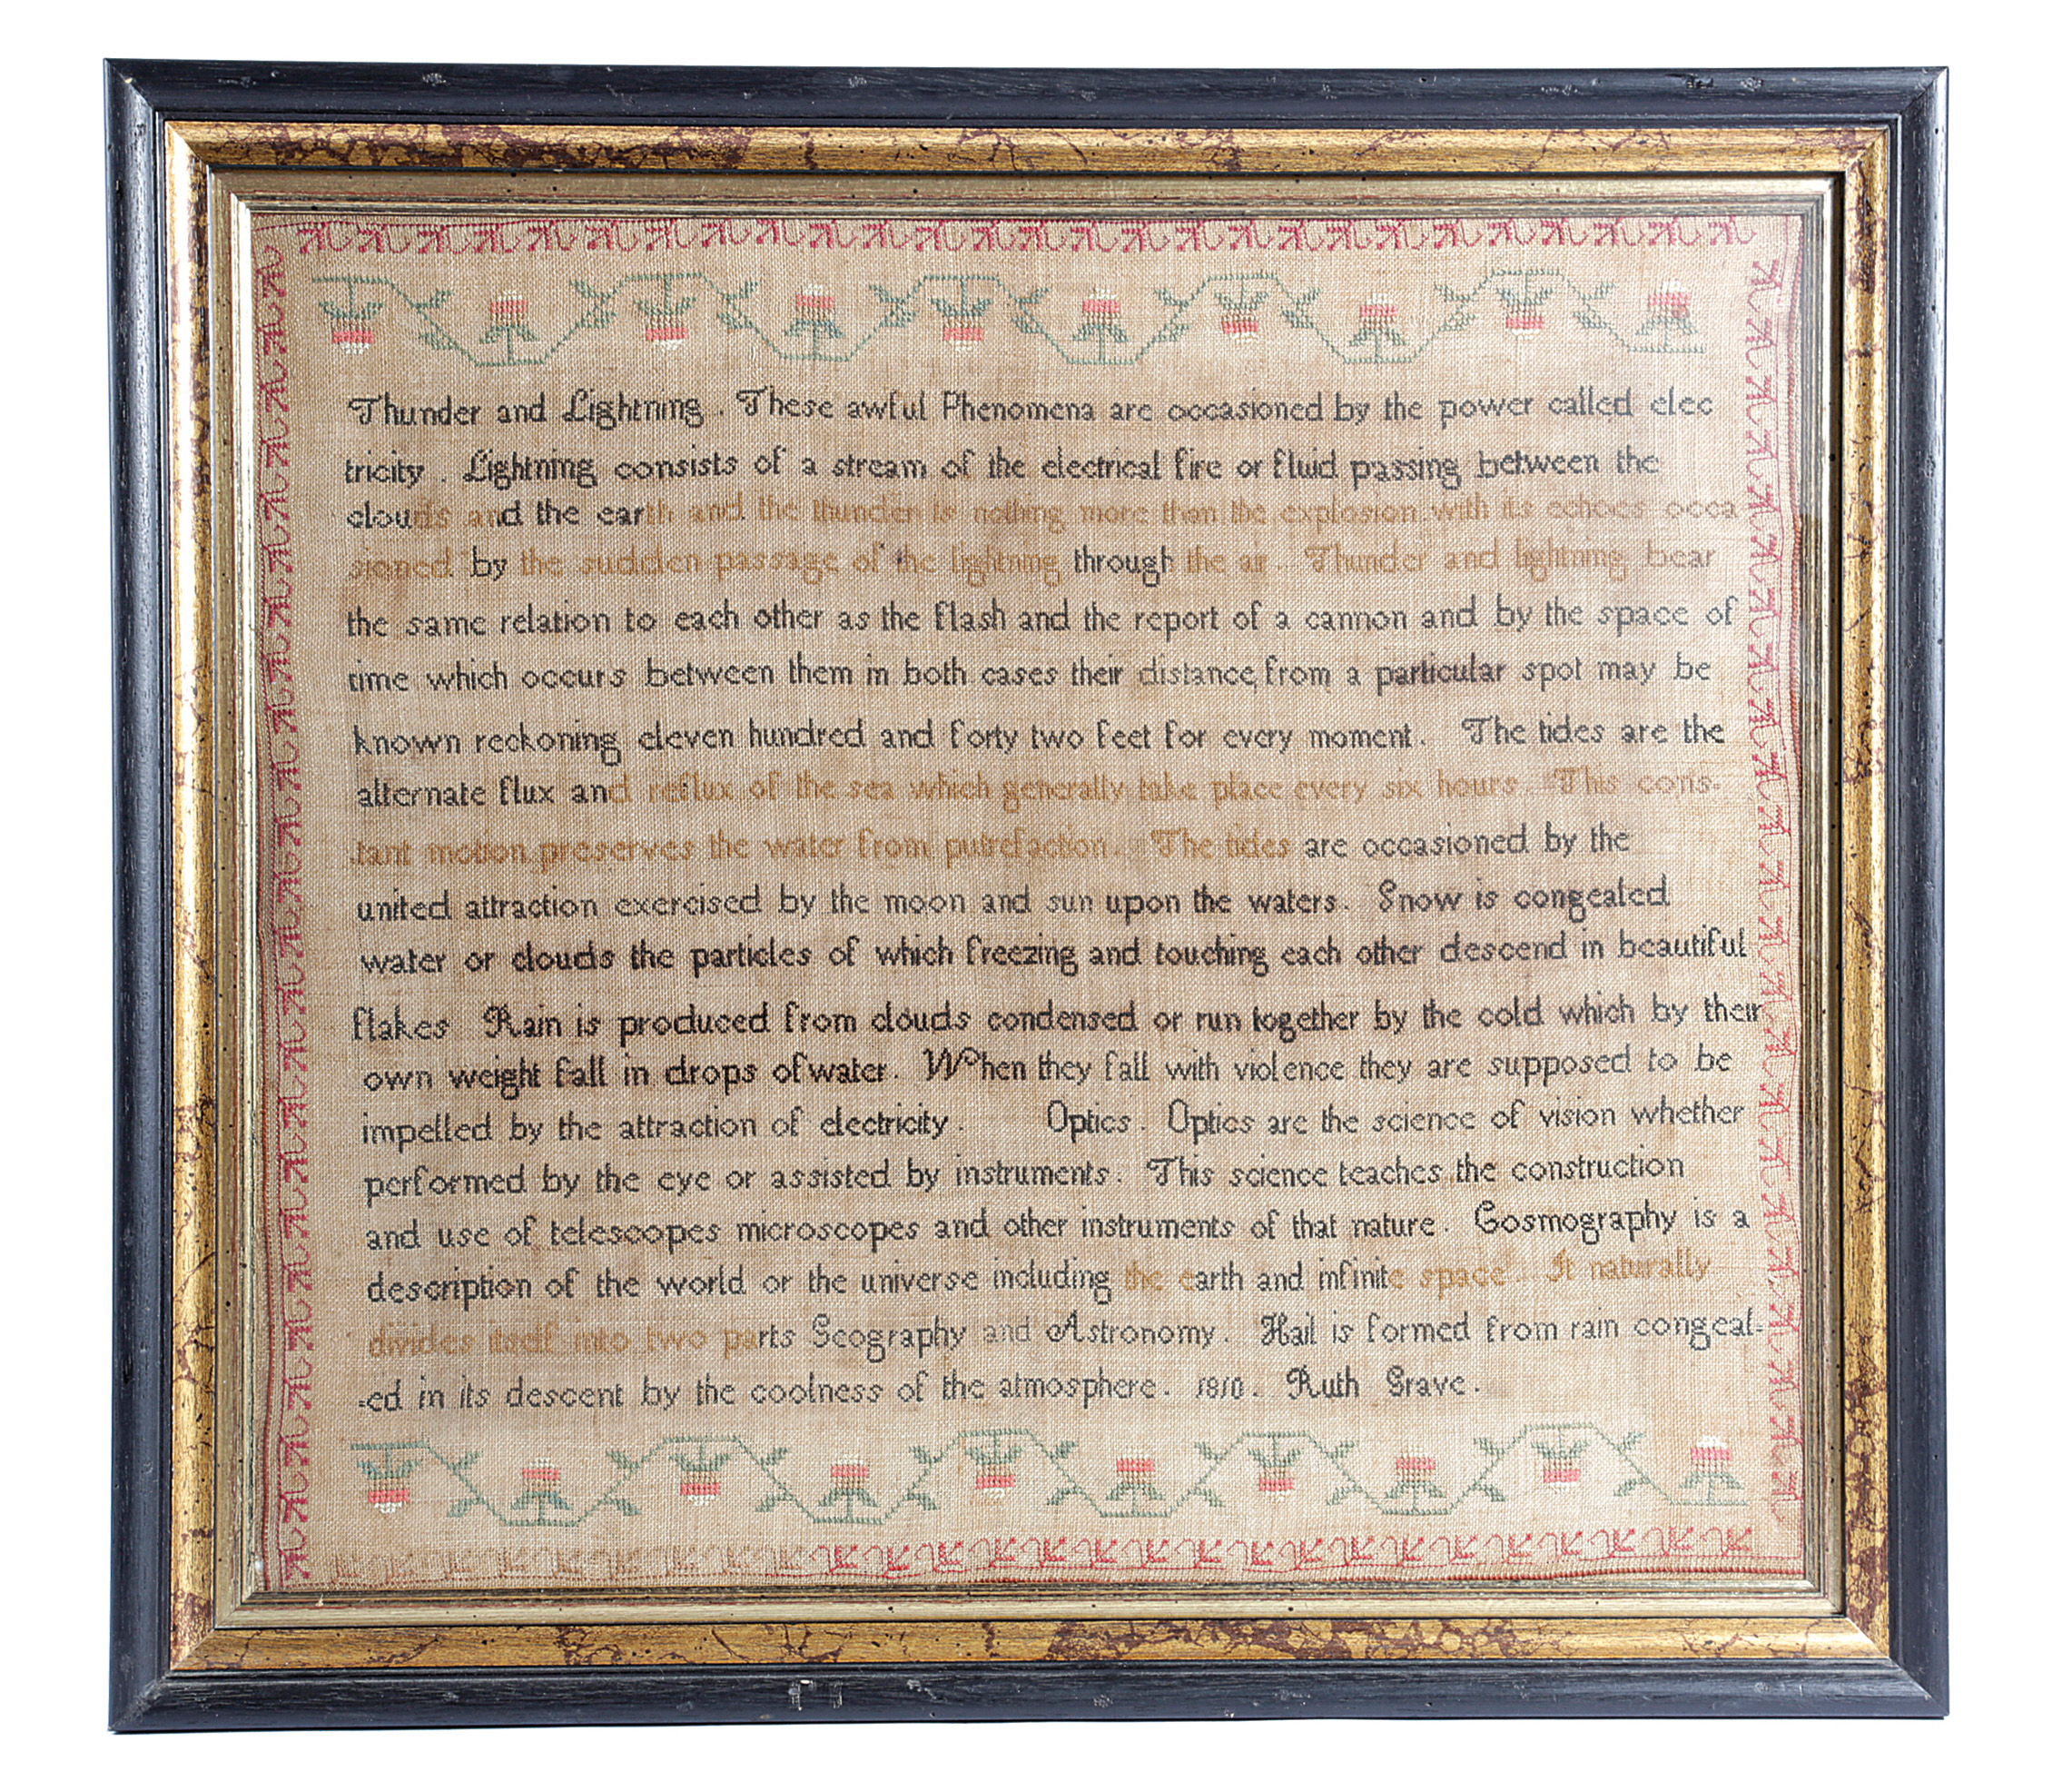 Thunder and Lightning . These awful Phenomena are occasioned by the power called elec
tricity . Lightning consists of a stream of the electrical fire or fluid passing between the
clouds and the earth and the thunder is nothing more than the explosion with its echoes occa
sioned by the sudden passage of the lightning through the air . Thunder and lightning bear
the same relation to each other as the flash and the report of a cannon and by the space of
time which occurs between them in both cases their distance, from a particular spot may be
known reckoning eleven hundred and forty two feet for every moment . The tides are the
alternate flux and reflux of the sea which generally take place every six hours . This cons-
-tant motion preserves the water from putrefaction . The tides are occasioned by the
united attraction exercised by the moon and sun upon the waters . Snow is congealed
water or clouds the particles of which freezing and touching each other descend in beautiful
flakes Rain is produced from clouds condensed or run together by the cold which by their
own weight fall in drops of water . When they fall with violence they are supposed to be
impelled by the attraction of electricity . Optics . Optics are the science of vision whether
performed by the eye or assisted by instruments . This science teaches the construction
and use of telescopes microscopes and other instruments of that nature . Cosmography is a
description of the world or the universe including the earth and infinite space . It naturally
divides itself into two parts Geography and Astronomy . Hail is formed from rain congeal-
-ed in its descent by the coolness of the atmosphere . 1810 . Ruth Grave .